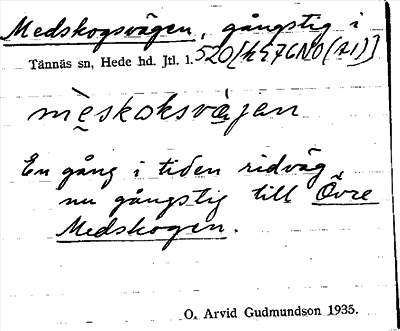 Medskogsvägen, gångstig i
Tännäs sn, Hede hd. Jtl. 1.520
mèskoksvägan
En gång i tiden ridväg
nu gångstig till Övre
Medskogen.
O. Arvid Gudmundson 1935.